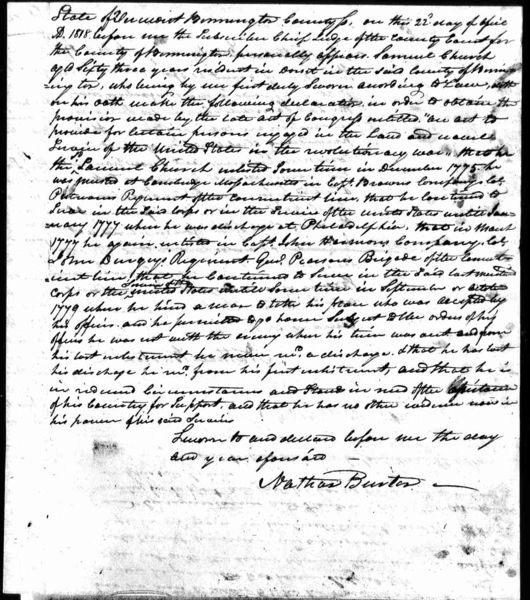 State of Vermont Bennington County Ss. on this 22d day of April
AD. 1818 before me the Subscriber Chief Judge of the County Court for
the County of Bennington, personally appears Samuel Church
aged Sixty three years resident in Dorset in the said County of Benning
ington, who being by me first duly Sworn according to Law, doth
on his oath make the following declaration in order to obtain the
provision made by the late act of Congress entitled "an act to
provide for certain persons engaged in the Land and naval
Service of the United States in the revolutionary war, that he
the Sd. Samuel Church enlisted Some time in December 1775. he
was mustered at Cambridge Massachusetts in Capt. Browns Company, Col.
Putnams Regiment of the Connecticut line, that he Continued to
Serve in the Said Corps or in the Service of the United States until Jan
uary 1777 when he was discharged at Philadelphia, that in March
1777 he again enlisted in Capt. John Harmons Company, Col.
John Durgys Regiment Genl. Pearsons Brigade of the Connect
icut line, that he Continued to Serve in the Said last mentioned
Corps or the Service of the United States until Some time in September or October
1779 when he hired a man to take his place who was accepted by
his officers and he permitted to go home Subject to the orders of his
officers he was not with the enemy when his time was out and upon
his last enlistment he never recd. a discharge, & that he has lost
his discharge he recd. from his first enlistment, and that he is
in reduced Circumstances and Stands in need of the assistance
of his Country for Support, and that he has no other evidence now in
his power of his said Services
Sworn to and declared before me the day
and year aforesaid
Nathan Burton